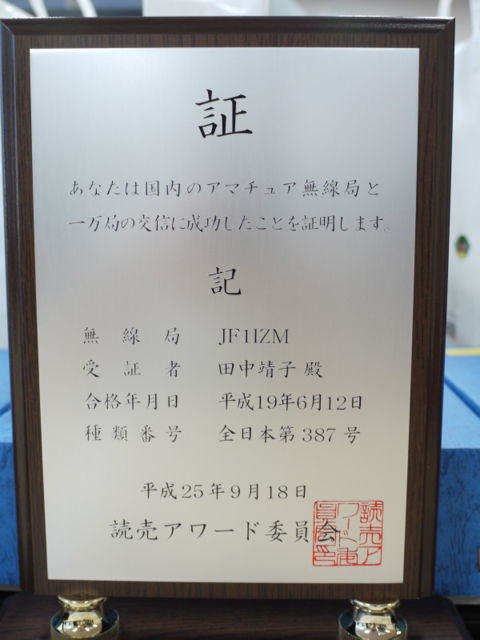 証
あなたは国内のアマチュア無線局と
一万局の交信に成功したことを証明します。
記
無線局 JF1IZM
受証者 田中靖子 殿
合格年月日 平成19年6月12日
種類番号 全日本第387号
平成25年9月18日
読売アワード委員会